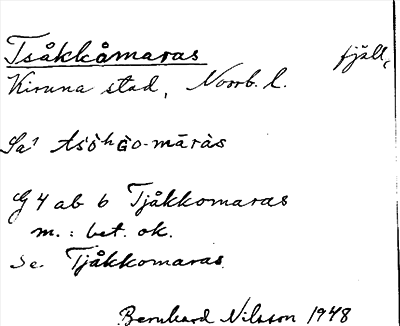 Tsåkkåmaras fjäll,
Kiruna stad, Norrb. l.
Sa1
G 4 ab b Tjåkkomaras
m.: bet. ok.
Se Tjåkkomaras
Bernhard Nilsson 1948